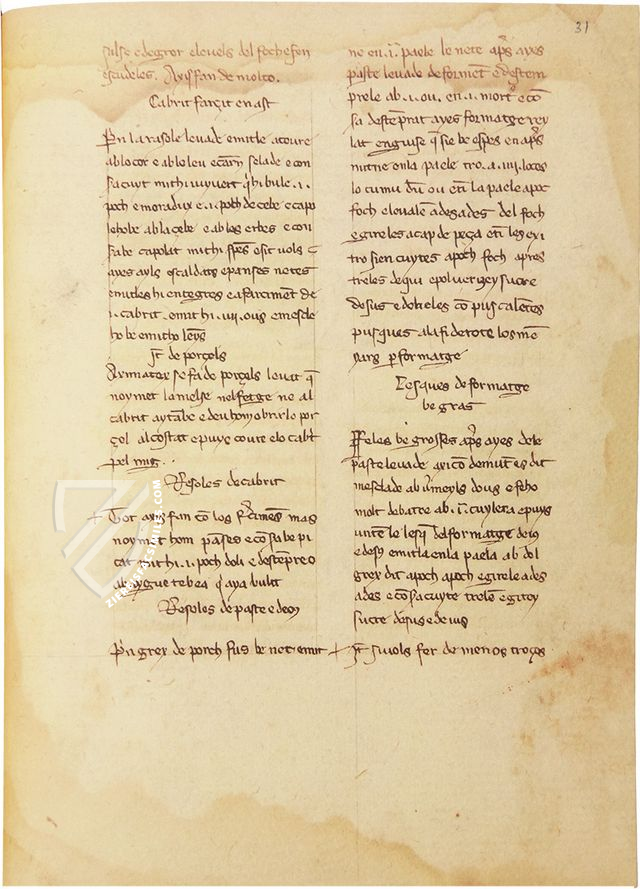 31
salse e de grex e levels del foch e fen
escudeles. Axis fan de molto.
Cabrit farçit en ast
Pn la rasole levade e mitle a coure
ab lo cor e ab lo leu e carn selade e con
sa cuyt mit hi juyvert q̃ hi bule .i.
poch e moradux e .i. poch de cebe e capo
le ho be ab la çebe e ab les erbes e con
sabe capolat mit hi spẽs e si t vols ç
ayes ayls escaldats e panses netes
e mitles hi entegres e a farcimẽt de
.i. cabrit. e mit hi .vii. ous e mescle
ho be e mit ho lẽns
Jt̃ de porçels
Aximatex se fa de porçels levat q̃
noy met la melse nel fetge ne al
cabrit aytãbe e deu hom obrir lo por
çel al costat e puyx coure e lo cabrit
pel mig.
Resoles de cabrit
Tot axi fan cõ los farcimẽs mas
noy met hom panses e cõ sabe pi
cat mit hi .i. poch doli e destempreo
ab aygue tebea q̃ aya bulit
Resoles de paste e deoy
Pn grex de porch fus be net e mit
ne en .i.ª paele le nete ap̃s ayes
paste levade de formẽt e destem
prele ab .i. ou. en .i. morter e cõ
sa destemprat ayes formatge rey
lat en guise que sie be espes en ap̃s
mit ne en la paele tro .a. .iiii. loces
lo cumu dũ ou etĩ la paele a poc
foch e levale ades ades del foch
e gireles a cap de peça etĩ les exi
tro sien cuytes a poch foch apres
treles de qui e polverizey sucre
desus e dotieles cõ pus calẽtes
pusques a la fi de totz los men
yars per formatge
Lesques de formatge
be gras
Fe les be grosses ap̃s ayes dele
paste levade axi cõ demũt es dit
mesclade ab vermeyls dous e fe ho
molt debatre ab .i.ª cuylera e puys
vntẽ le lesq̃ del formatge deius
e desus e mitla en la paela ab del
grex dit a poch a poch e girele ades
ades e cõ sa cuyte trele ẽ e gitoy
sucre desus e deius
+ Jt̃ si vols fer de menos troçes
ZIEREIS FACSIMILES.COM